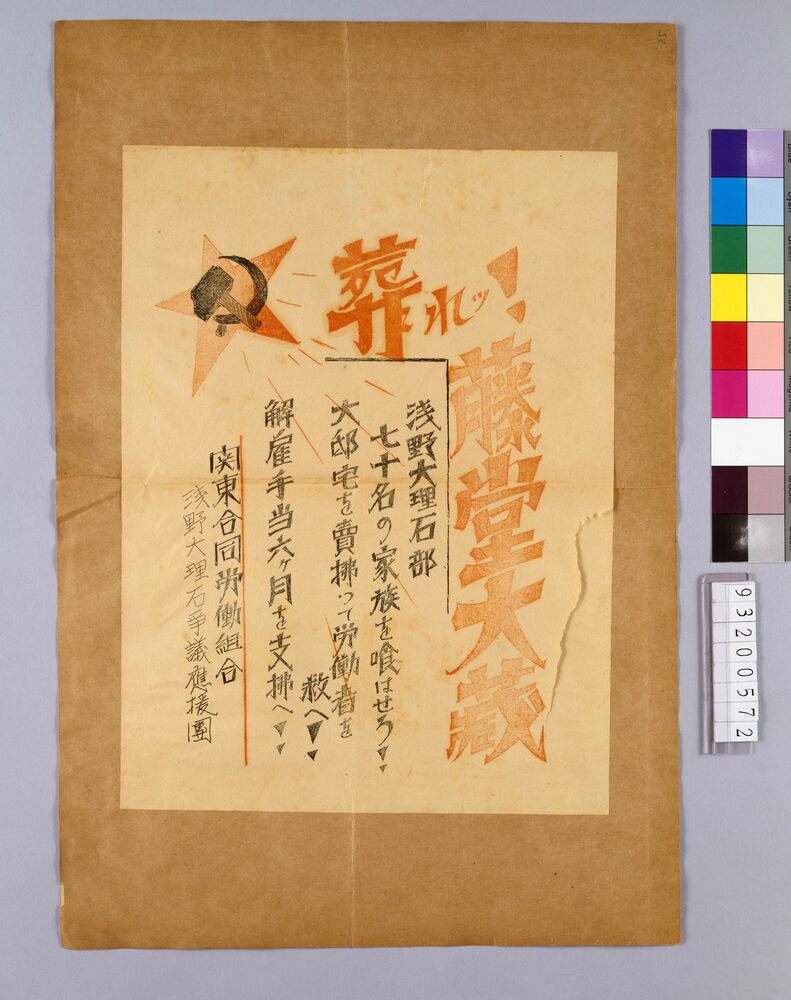 葬れッ!
藤堂大蔵
浅野大理石部
七十名の家族を喰はせろ
大邸宅を賣拂って労働者を
救へ
解雇手当六ヶ月を支拂へ
関東合同労働組合
浅野大理石争議應援團
25
93200572